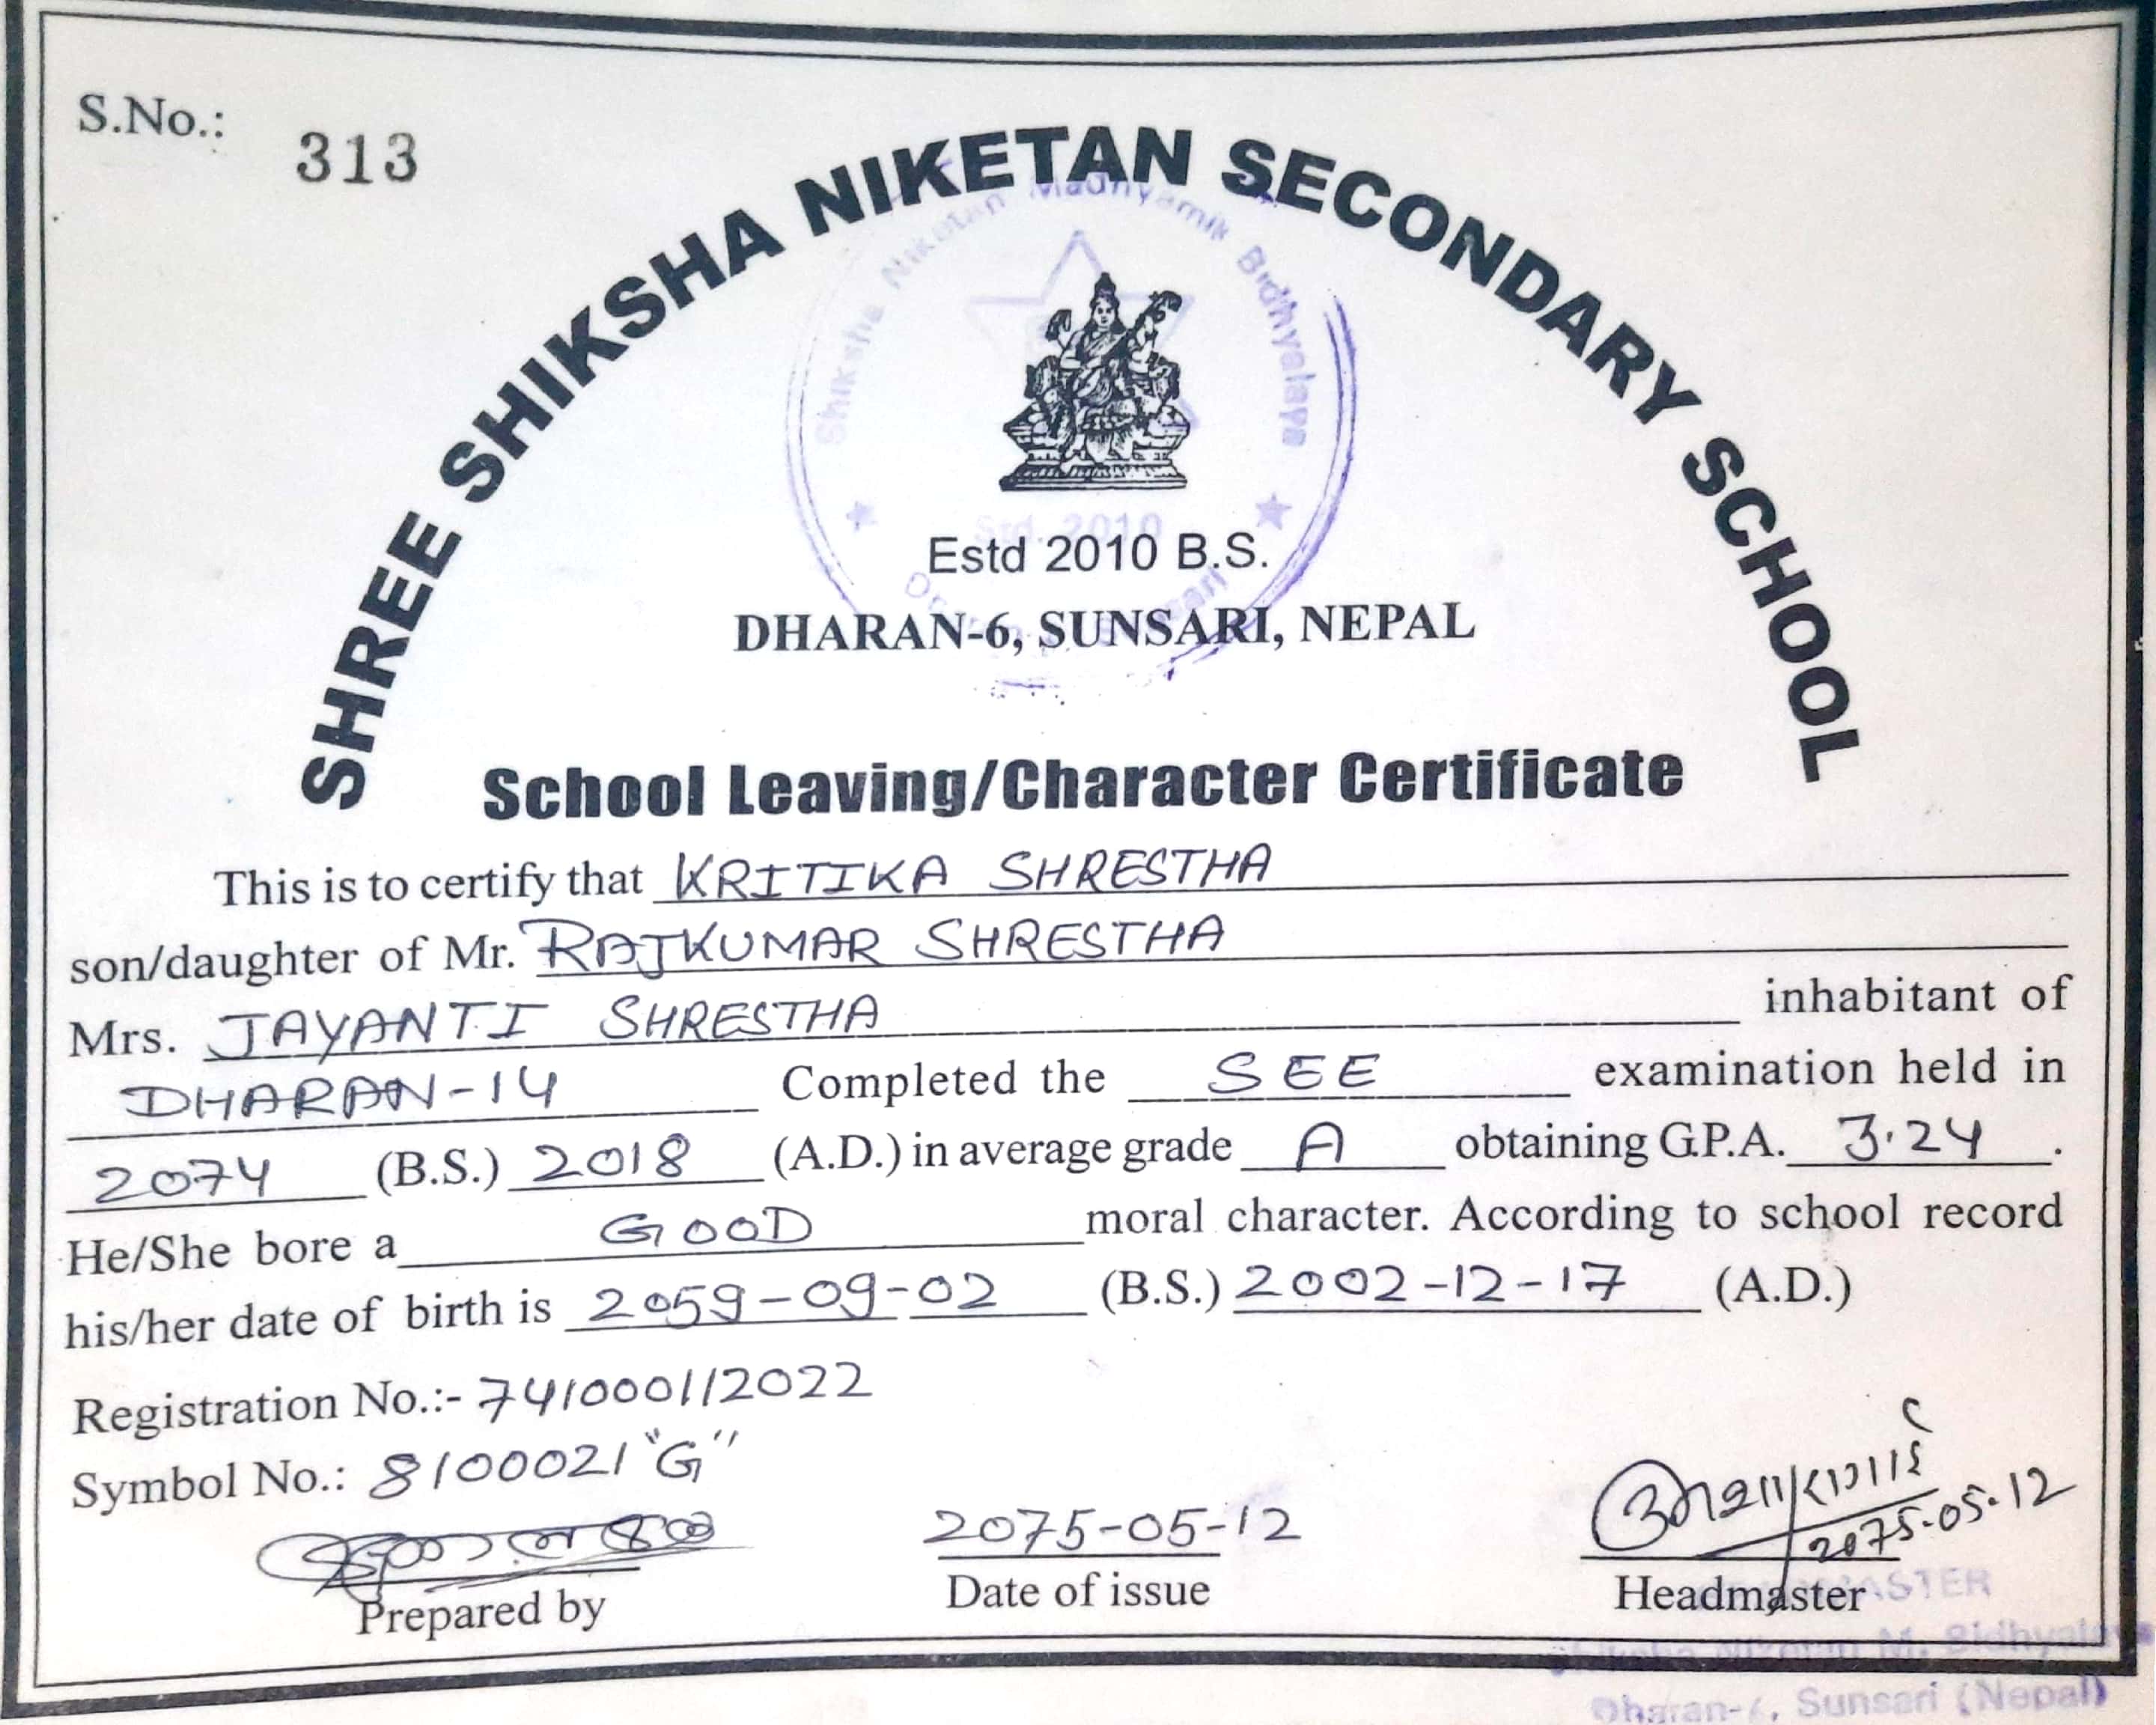 S.No.: 313
SHREE SHIKSHA NIKETAN SECONDARY SCHOOL
Shiksha Niketan Madhyamik Bidhyalaya
Estd. 2010
Estd 2010 B.S.
DHARAN-6, SUNSARI, NEPAL
School Leaving/Character Certificate
This is to certify that KRITIKA SHRESTHA
son/daughter of Mr. RAJKUMAR SHRESTHA
Mrs. JAYANTI SHRESTHA inhabitant of
DHARAN-14 Completed the SEE examination held in
2074 (B.S.) 2018 (A.D.) in average grade A obtaining G.P.A. 3.24.
He/She bore a GOOD moral character. According to school record
his/her date of birth is 2059-09-02 (B.S.) 2002-12-17 (A.D.)
Registration No.:- 7410001/2022
Symbol No.: 8100021 "G"
2075-05-12
2075-05-12
Prepared by Date of issue Headmaster
HEADMASTER
Shiksha Niketan M. Bidhyalaya
Dharan-6, Sunsari (Nepal)